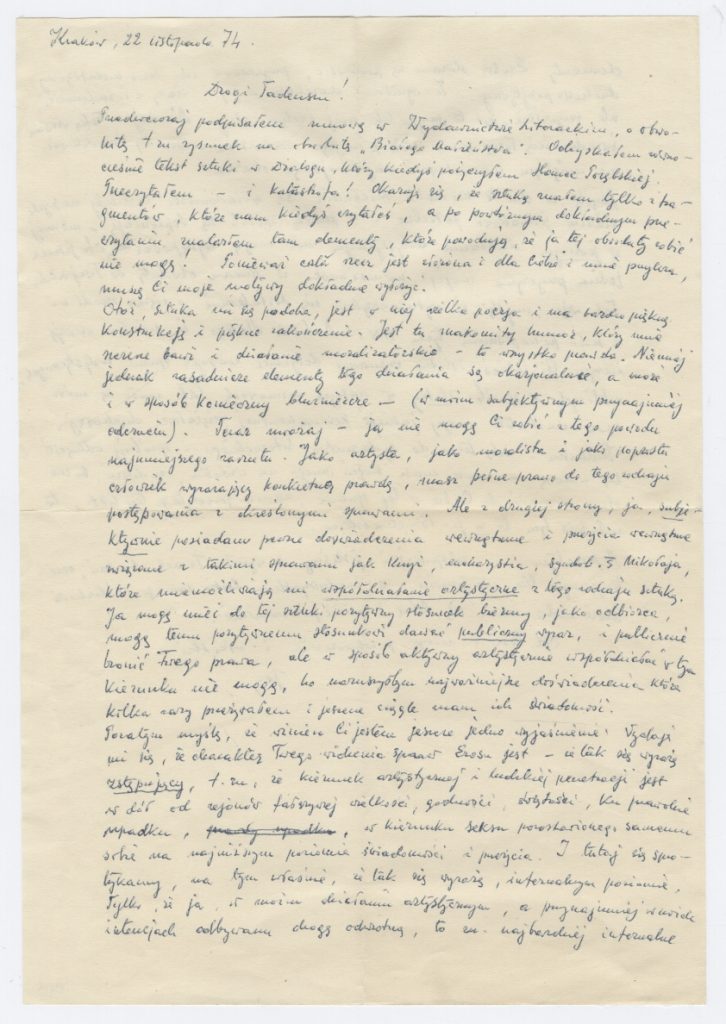 Kraków, 22 listopada 74.
Drogi Tadeuszu!
Przedwczoraj podpisałem umowę w Wydawnictwie Literackim, o obwo-
lutę t.zn rysunek na obwolutę „Białego Małżeństwa". Odzyskałem równo-
cześnie tekst sztuki w Dialogu, który kiedyś pożyczyłem
Przeczytałem – i katastrofa! Okazuje się, że sztukę znałem tylko z fra-
gmentów, które nam kiedyś czytałeś, a po powtórnym dokładnym prze-
czytaniu znalazłem tam elementy, które powodują, że ja tej obwoluty robić
nie mogę! Ponieważ cała rzecz jest złożona i dla Ciebie i mnie przykra,
muszę Ci moje motywy dokładnie wyłożyć.
Otóż, sztuka mi się podoba, jest w niej wielka poezja i ma bardzo piękną
konstrukcję i piękne zakończenie. Jest tu znakomity humor, który mnie
szczerze bawi i działanie moralizatorskie – to wszystko prawda. Niemniej
jednak zasadnicze elementy tego działania są obrazoburcze, a może
i w sposób konieczny bluźniercze – (w moim subjektywnym przynajmniej
odczuciu). Teraz uważaj – ja nie mogę Ci robić z tego powodu
najmniejszego zarzutu. Jako artysta, jako moralista i jako poprostu
człowiek wyrażający konkretną prawdę, masz pełne prawo do tego rodzaju
postępowania z określonymi sprawami. Ale z drugiej strony, ja, subje-
ktywnie posiadam pewne doświadczenia wewnętrzne i przeżycia wewnętrzne
związane z takimi sprawami jak Krzyż, eucharystia, symbol św Mikołaja,
które uniemożliwiają mi współdziałanie artystyczne z tego rodzaju sztuką.
Ja mogę mieć do tej sztuki pozytywny stosunek bierny, jako odbiorca,
mogę temu pozytywnemu stosunkowi dawać publiczny wyraz, i publicznie
bronić Twego prawa, ale w sposób aktywny artystycznie współdziałać w tym
kierunku nie mogę, bo naruszyłbym najważniejsze doświadczenia które
kilka razy przeżywałem i jeszcze ciągle mam ich świadomość.
Pozatym myślę, że winien Ci jestem jeszcze jedno wyjaśnienie: Wydaje
mi się, że charakter Twego widzenia spraw Erosu jest – że tak się wyrażę
zstępujący, t.zn, że kierunek artystycznej i ludzkiej penetracji jest
w dół od rejonów fałszywej wielkości, godności, świętości, ku prawdzie
upadku, prawdy upadku, w kierunku seksu pozostawionego samemu
sobie na najniższym poziomie świadomości i przeżycia. I tutaj się spo-
tykamy, na tym właśnie, że tak się wyrażę, infernalnym poziomie,
tylko, że ja, w moim działaniu artystycznym, a przynajmniej w moich
intencjach odbywam drogę odwrotną, to zn. najbardziej infernalne